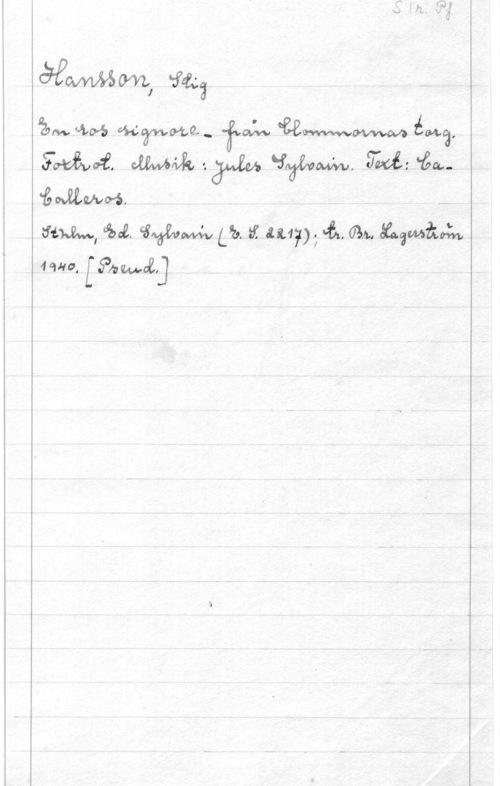 S [n. Pf
Hansson, Stig
En ros signore - från blommornas torg.
Foxtrot. Musik: Jules Sylvain. Text: Ca-
balleros.
Sthlm, Ed. Sylvain (E. S. 2217); tr. Br. Lagerström
1940. [Pseud.]